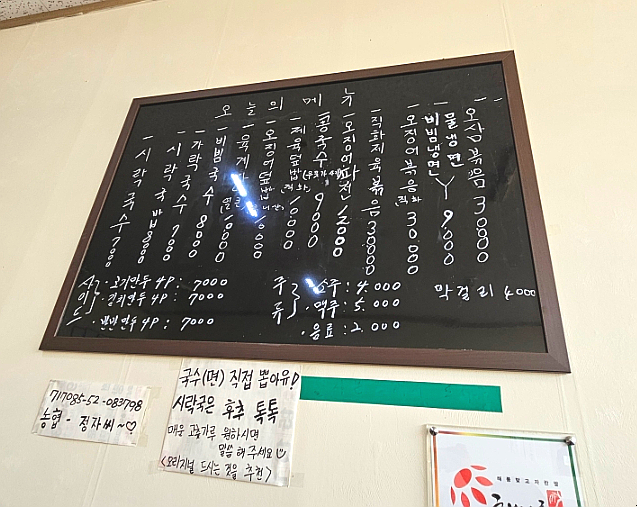 오늘의 메뉴
시락국수 7000
시락국밥 8000
가락국수 7000
비빔국수 8000
육개장
오징어덮밥
제육덮밥 직화
콩국수 9000
오징어파전
직화제육볶음 30000
오징어볶음 직화 30000
비빔냉면
물냉면 9000
오삼볶음 30000
사이드
고기만두 4P: 7000
김치만두 4P: 7000
4P: 7000
주류
소주: 4.000
맥주: 5.000
음료: 2.000
막걸리 4000
717085-52-083798
농협 - 정자씨~♡
국수(면) 직접 뽑아유!
시락국은 후추 톡톡
매운 고춧가루 원하시면
말씀 해 주세요
<오리지널 드시는 것을 추천>